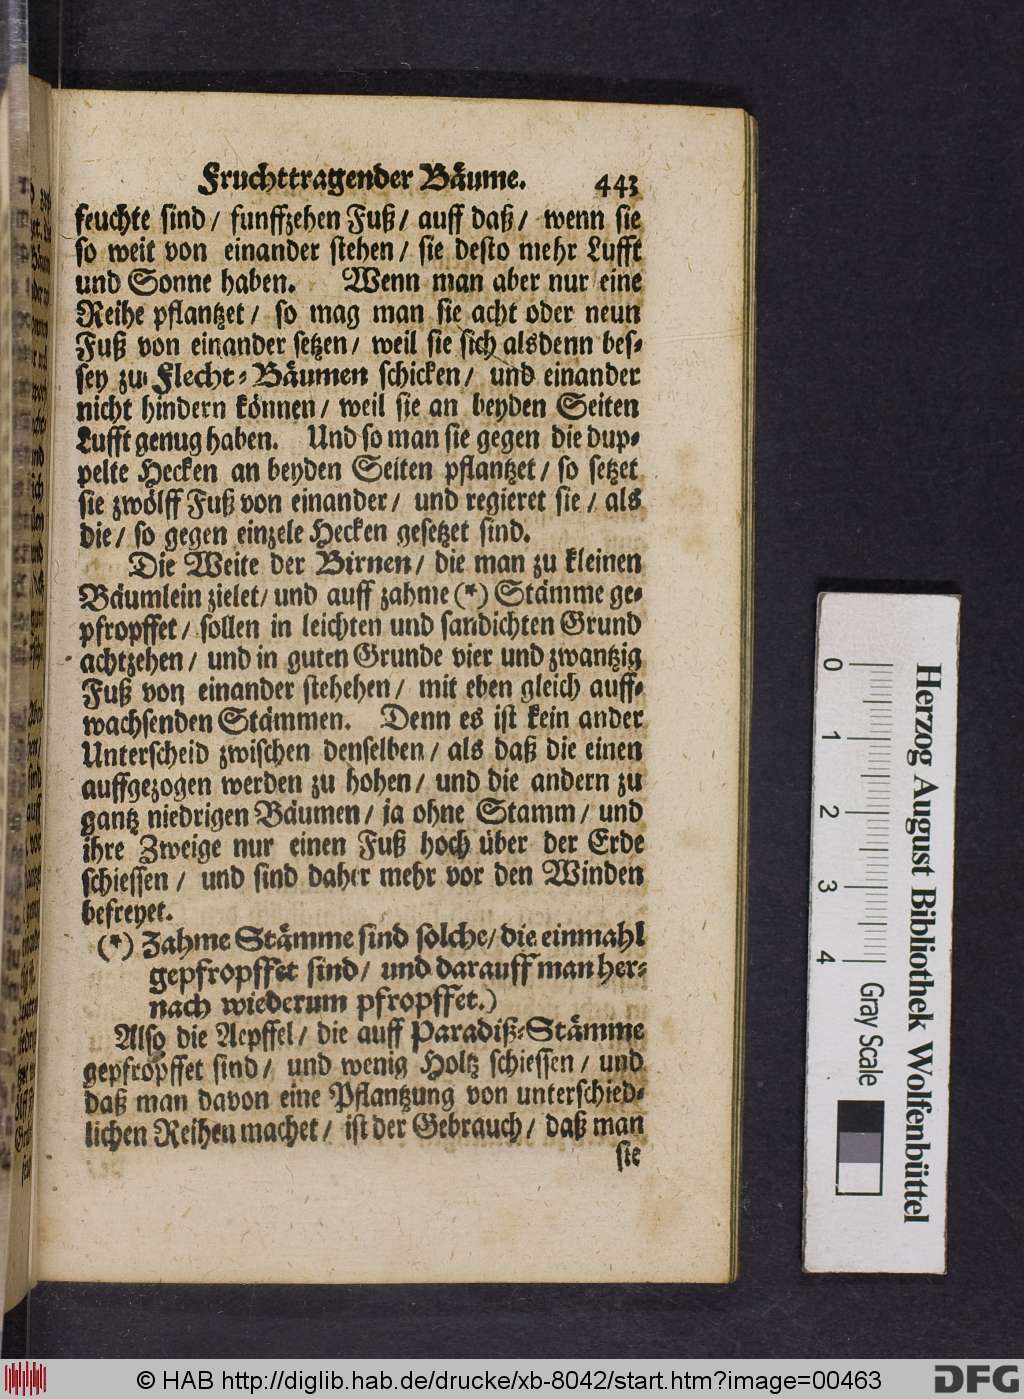 Fruchttragender Bäume. 443
feuchte sind / funffzehen Fuß / auff daß / wenn sie
so weit von einander stehen / sie desto mehr Lufft
und Sonne haben. Wenn man aber nur eine
Reihe pflantzet / so mag man sie acht oder neun
Fuß von einander setzen / weil sie sich alsdenn bes-
sey zu Flecht-Bäumen schicken / und einander
nicht hindern können / weil sie an beyden Seiten
Lufft genug haben. Und so man sie gegen die dup-
pelte Hecken an beyden Seiten pflantzet / so setzet
sie zwölff Fuß von einander / und regieret sie / als
die / so gegen einzele Hecken gesetzet sind.
Die Weite der Birnen / die man zu kleinen
Bäumlein zielet / und auff zahme (*) Stämme ge-
pfropffet / sollen in leichten und sandichten Grund
achtzehen / und in guten Grunde vier und zwantzig
Fuß von einander stehehen / mit eben gleich auff-
wachsenden Stämmen. Denn es ist kein ander
Unterscheid zwischen denselben / als daß die einen
auffgezogen werden zu hohen / und die andern zu
gantz niedrigen Bäumen / ja ohne Stamm / und
ihre Zweige nur einen Fuß hoch über der Erde
schiessen / und sind daher mehr vor den Winden
befreyet.
(*) Zahme Stämme sind solche / die einmahl
gepfropffet sind / und darauff man her-
nach wiederum pfropffet.)
Also die Aepffel / die auff Paradiß-Stämme
gepfropffet sind / und wenig Holtz schiessen / und
daß man davon eine Pflantzung von unterschied-
lichen Reihen machet / ist der Gebrauch / daß man
sie
0 1 2 3 4 Gray Scale
Herzog August Bibliothek Wolfenbüttel
© HAB http://diglib.hab.de/drucke/xb-8042/start.htm?image=00463
DFG